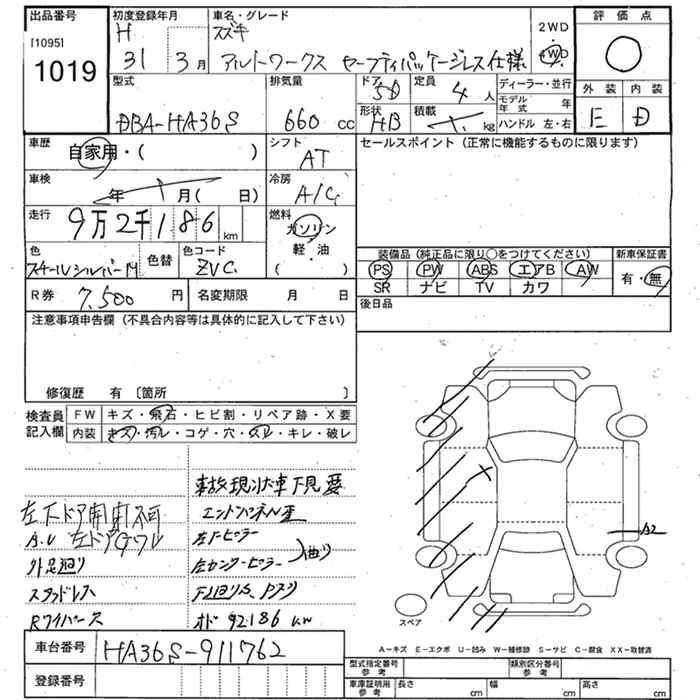 出品番号
[1095]
1019
初度登録年月
H
31 3月
車名・グレード
スズキ
アルトワークス セーフティパッケージレス仕様
2WD
4WD
評価点
外装 内装
E D
型式
DBA-HA36S
排気量
660 cc
ドア
5D
形状
HB
定員
4人
積載
kg
ディーラー・並行
モデル年式 年
ハンドル 左・右
車歴
自家用・( )
シフト
AT
セールスポイント (正常に機能するものに限ります)
車検
年 月( 日)
冷房
A/C
走行
9万2千186 km
燃料
ガソリン
軽・油
( )
色
スチールシルバーM
色替
色コード
ZVC
装備品 (純正品に限り○をつけてください)
PS PW ABS エアB AW
SR ナビ TV カワ
新車保証書
有・無
R券 7,500 円
名変期限 月 日
後日品
注意事項申告欄 (不具合内容等は具体的に記入して下さい)
修復歴 有 〔箇所 〕
検査員記入欄
FW キズ・飛石・ヒビ割・リペア跡・X要
内装 キズ・汚レ・コゲ・穴・スレ・キレ・破レ
事故現状車下見要
左ドア開閉不可
エンドパネル歪
左ドアワレ
左Fピラー
外足廻り
左センターピラー
曲り
スタッドレス
Rワイパーレス
オド 92186 km
A2
スペア
A-キズ E-エクボ U-凹み W-補修跡 S-サビ C-腐食 XX-取替済
車台番号 HA36S-911762
登録番号
型式指定番号 参考
類別区分番号 参考
車庫証明用 参考 長さ cm 幅 cm 高さ cm